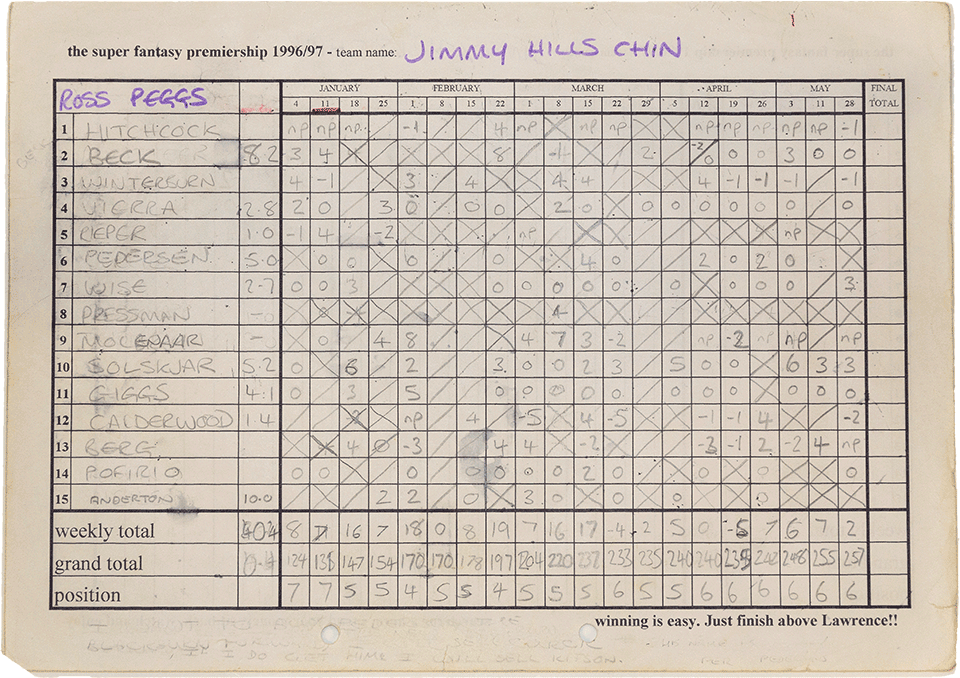 the super fantasy premiership 1996/97 - team name: JIMMY HILLS CHIN
ROSS PEGGS JANUARY FEBRUARY MARCH APRIL MAY FINAL TOTAL
4 11 18 25 1 8 15 22 1 8 15 22 29 5 12 19 26 3 11 28
1 HITCHCOCK np np np -1 4 np np np np np np np np -1
2 BECK 8.2 3 4 8 -1 2 -2 0 0 0 3 0 0
3 WINTERBURN 4 -1 3 4 4 4 4 -1 -1 -1 -1
4 VIERRA 2.8 2 0 3 0 0 0 2 0 0 0 0 0 0 0 0
5 PEPER 1.0 -1 4 -2 np np
6 PEDERSEN 5.0 0 0 0 0 4 0 2 0 2 0
7 WISE 2.7 0 0 3 0 0 0 0 0 0 0 0 0 0 3
8 PRESSMAN
9 MOLENAAR - 0 4 8 4 7 3 -2 np -2 np np np
10 SOLSKJAR 5.2 0 6 2 3 0 0 2 3 5 0 0 6 3 3
11 GIGGS 4.1 0 3 5 0 0 0 0 0 0 0 0 0 0 0 0
12 CALDERWOOD 1.4 np 4 -5 4 -5 -1 -1 4 -2
13 BERG 4 0 -3 4 4 -2 -3 -1 2 -2 4 np
14 POFIRIO 0 0 0 0 0 0 0 2 0 0 0 0 0
15 ANDERTON 10.0 2 2 0 3 0 0 0
weekly total 8 7 16 7 18 0 8 19 7 16 17 -4 2 5 0 -5 7 6 7 2
grand total 124 131 147 154 170 170 178 197 204 220 237 233 235 240 240 235 242 248 255 257
position 7 7 5 5 4 5 5 4 5 5 5 6 5 6 6 6 6 6 6 6
winning is easy. Just finish above Lawrence!!